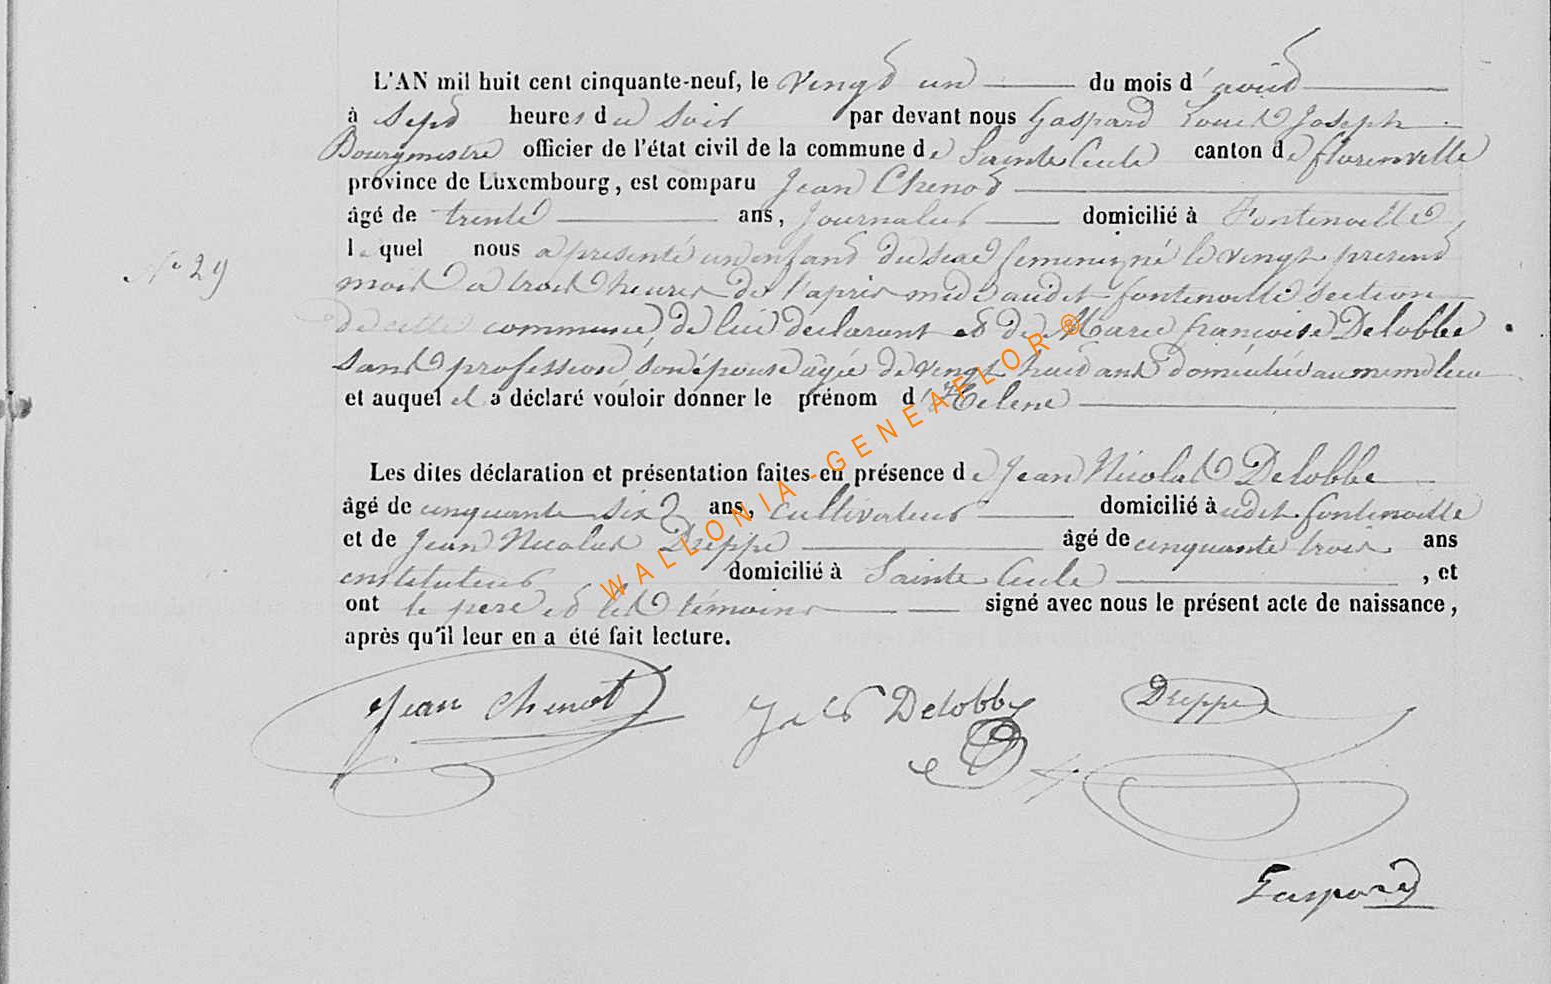 L'AN mil huit cent cinquante-neuf, le vingt un du mois d'aout
à sept heures du soir par devant nous Gaspard Louis Joseph
Bourgmestre officier de l'état civil de la commune de Sainte Cecile canton de florenville
province de Luxembourg, est comparu Jean Chenot
âgé de trente ans, Journalier domicilié à Fontenoille
N° 29
lequel nous a présenté un enfant du sexe feminin né le vingt present
mois a trois heures de l'apres midi audit fontenoille section
de cette commune de lui declarant et de Marie françoise Delobbe
sans profession son épouse agée de vingt huit ans domiciliée au meme lieu
et auquel il a déclaré vouloir donner le prénom d'Helene
Les dites déclaration et présentation faites en présence de Jean Nicolas Delobbe
âgé de cinquante six ans, cultivateur domicilié à udit fontenoille
et de Jean Nicolas Dreppe âgé de cinquante trois ans
instituteur domicilié à Sainte Cecile, et
ont le pere et les témoins signé avec nous le présent acte de naissance,
après qu'il leur en a été fait lecture.
Jean Chenot Delobbe Dreppe
Gaspard
WALLONIA-GENEAFLOR®